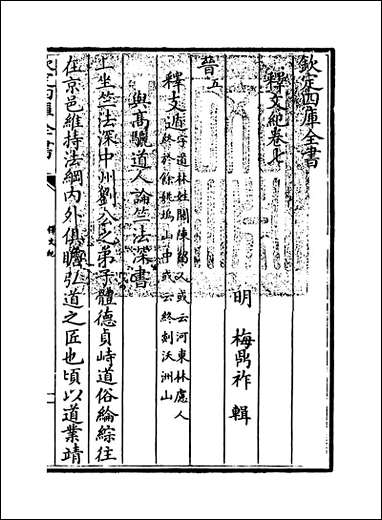 欽定四庫全書
釋文紀卷七
明 梅鼎祚 輯
晉五
釋支遁字道林姓關陳留人或云河東林慮人
終於餘姚塢山中或云終剡沃洲山
與高驪道人論竺法深書
上坐竺法深中州劉公之弟子體德貞峙道俗綸綜往
在京邑維持法綱內外俱瞻弘道之匠也頃以道業靖
欽定四庫全書
釋文紀
一